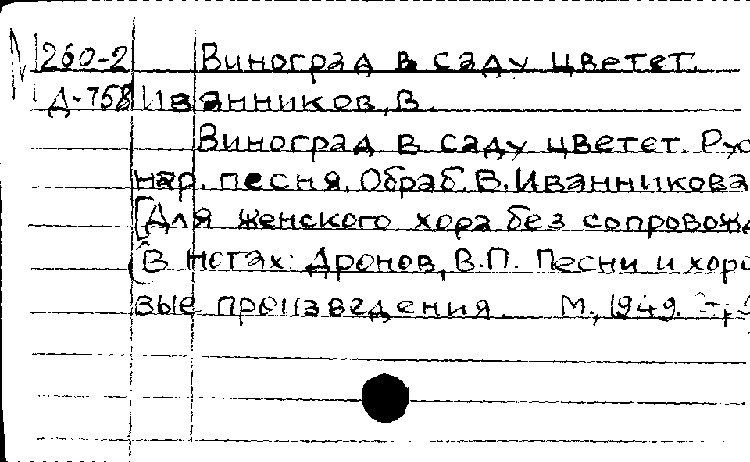 260-2 Виноград в саду цветет.
Д-758 Иванников, В.
Виноград в саду цветет. Рус
нар. песня. Обраб. В. Иванникова
[Для женского хора без сопровожд
(В нотах: Дронов, В.П. Песни и хоро
вые произведения. М., 1949.